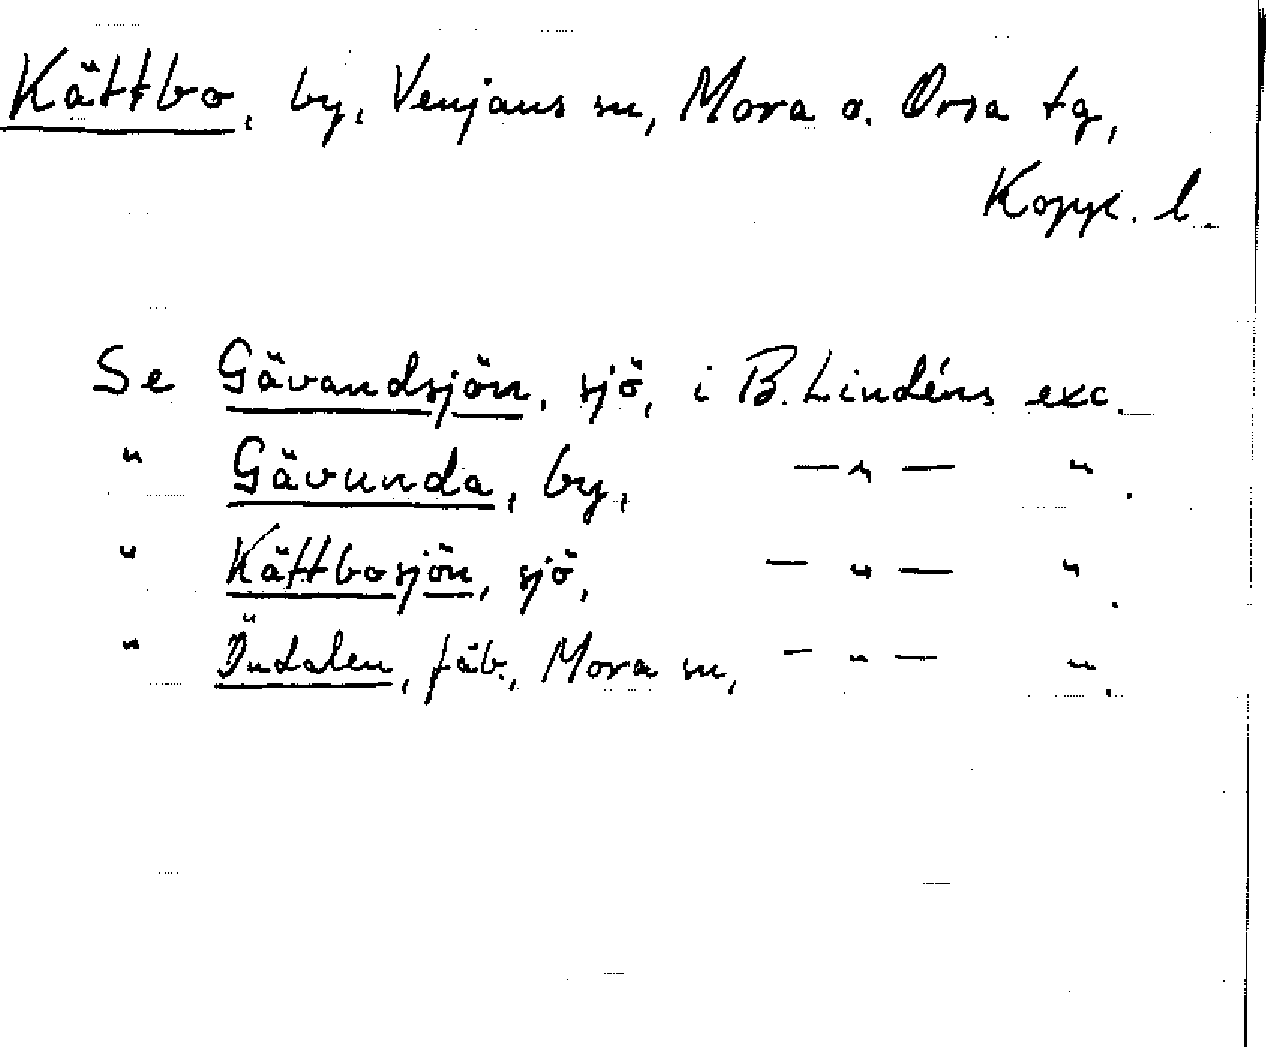 Kättbo, by, Venjans sn, Mora o. Orsa tg,
Kopp. l.
Se Gävandsjön, sjö, i B. Lindéns exc.
" Gävunda, by, — " — ".
" Kättbosjön, sjö, — " — ".
" Öudalen, fäb., Mora sn, — " — ".